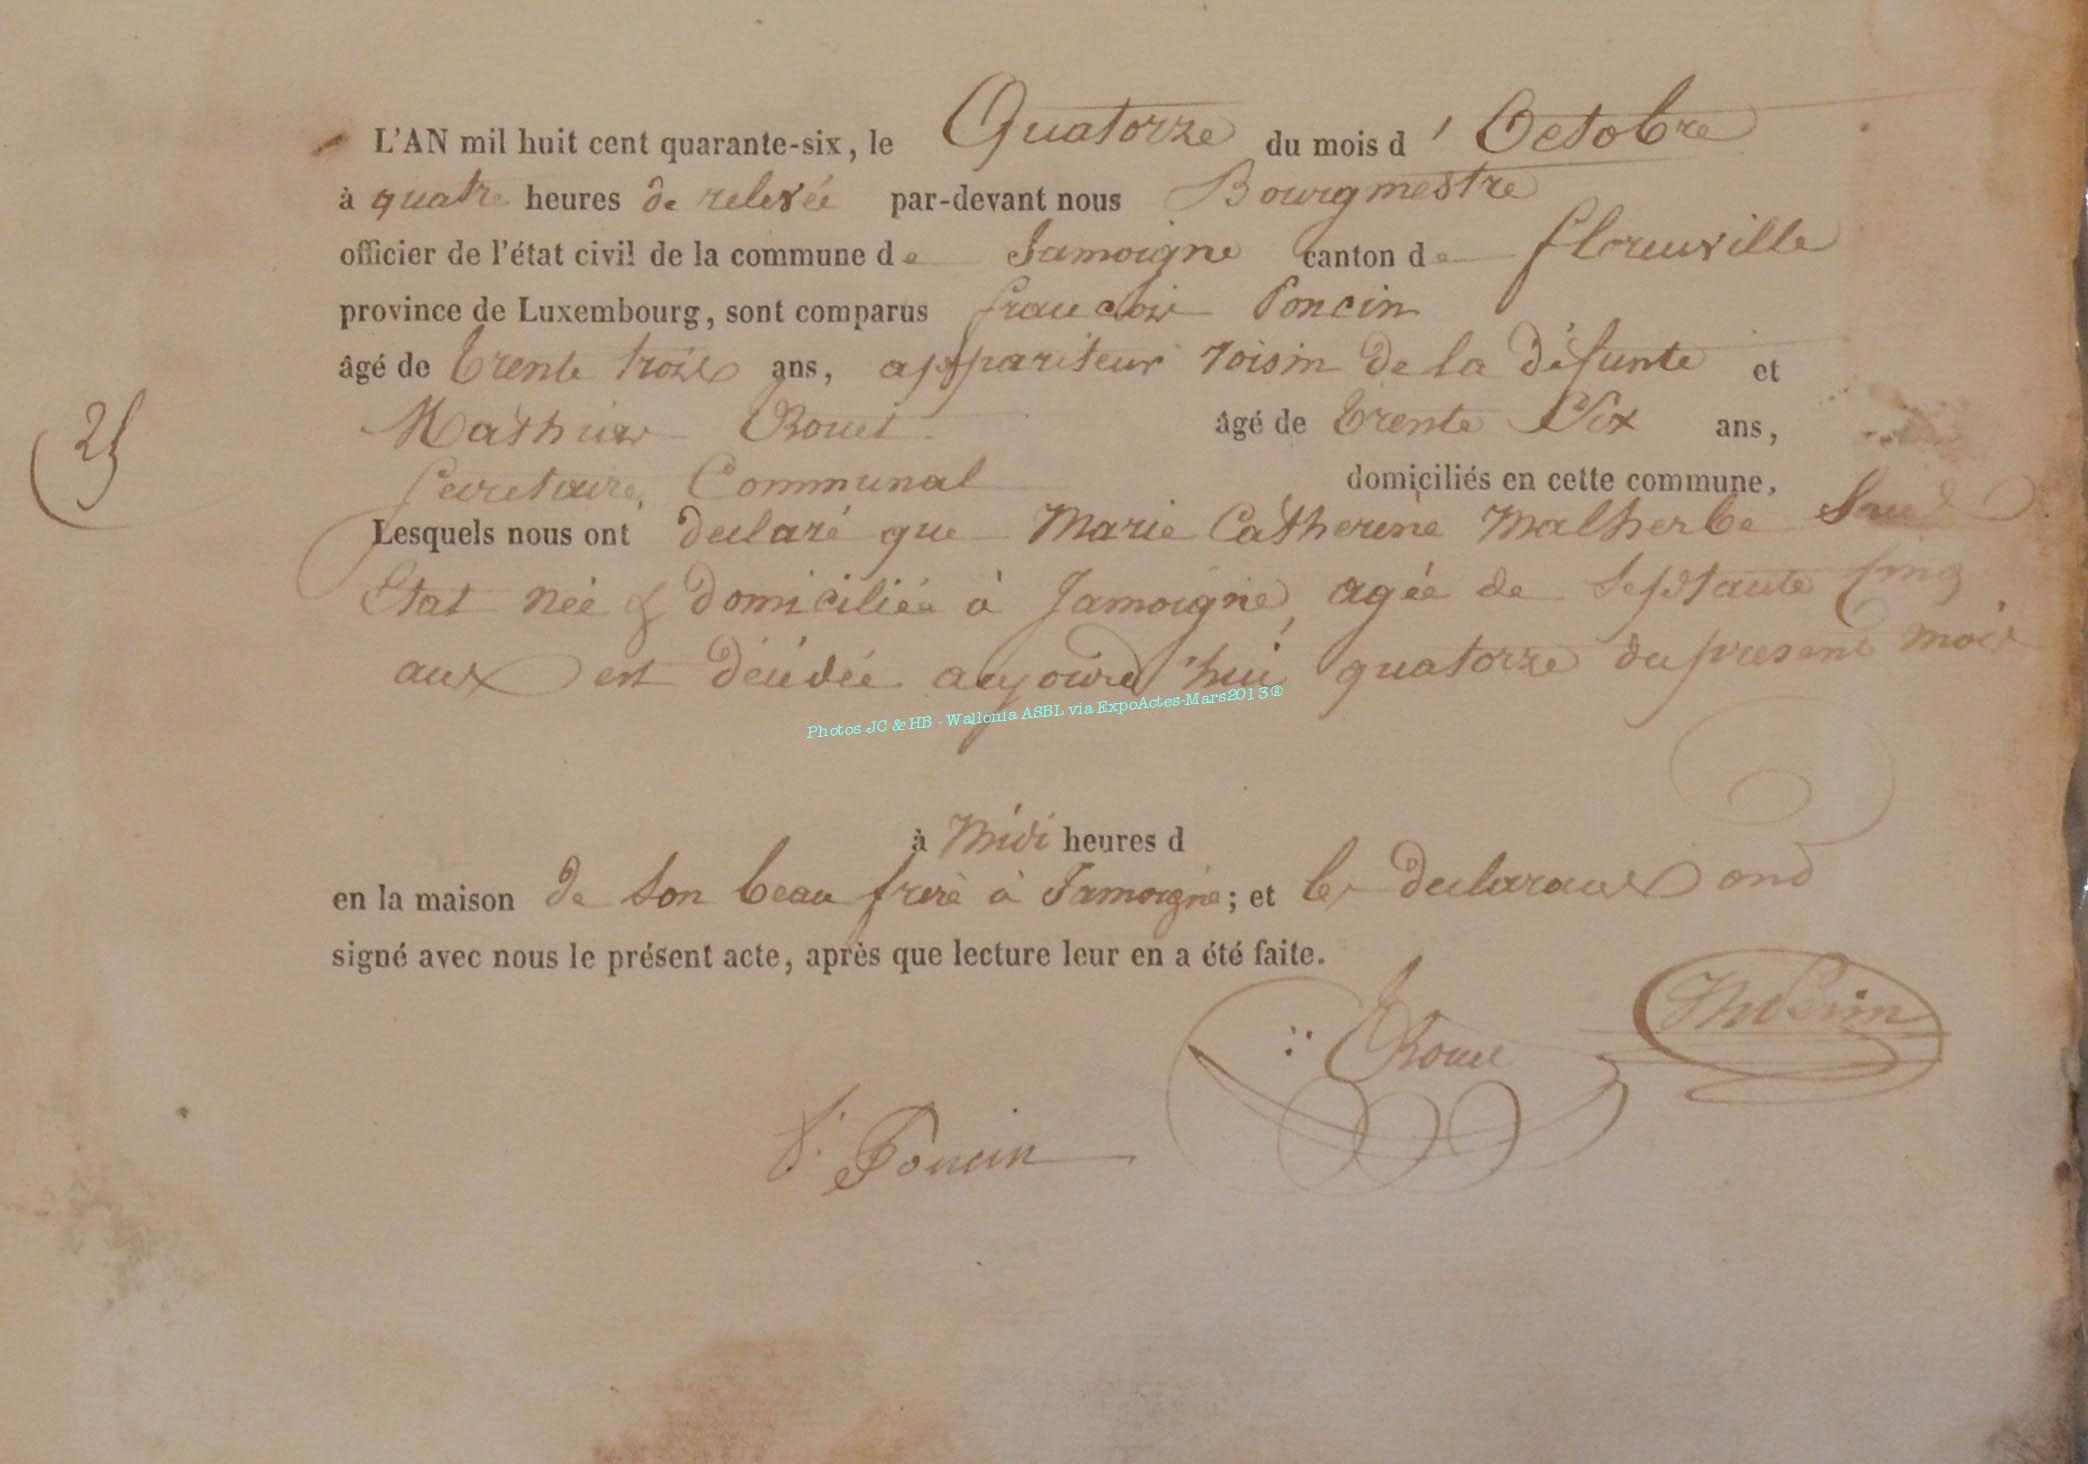 L'AN mil huit cent quarante-six, le Quatorze du mois d'Octobre
à quatre heures de relevée par-devant nous Bourgmestre
officier de l'état civil de la commune de Jamoigne canton de florenville
province de Luxembourg, sont comparus francois Poncin
âgé de trente trois ans, appariteur voisin de la défunte et
Mathieu Rouet âgé de trente Six ans,
Secretaire Communal domiciliés en cette commune,
25
Lesquels nous ont declaré que Marie Catherine Malherbe Sans
Etat née & domiciliée à Jamoigne, agée de Septante Cinq
ans est décédée aujourd'hui quatorze du present mois
Photos JC & HB - Wallonia ASBL via ExpoActes-Mars2013®
à Midi heures d
en la maison de son beau frere à Jamoigne; et les declarans ond
signé avec nous le présent acte, après que lecture leur en a été faite.
Rouet
Poncin